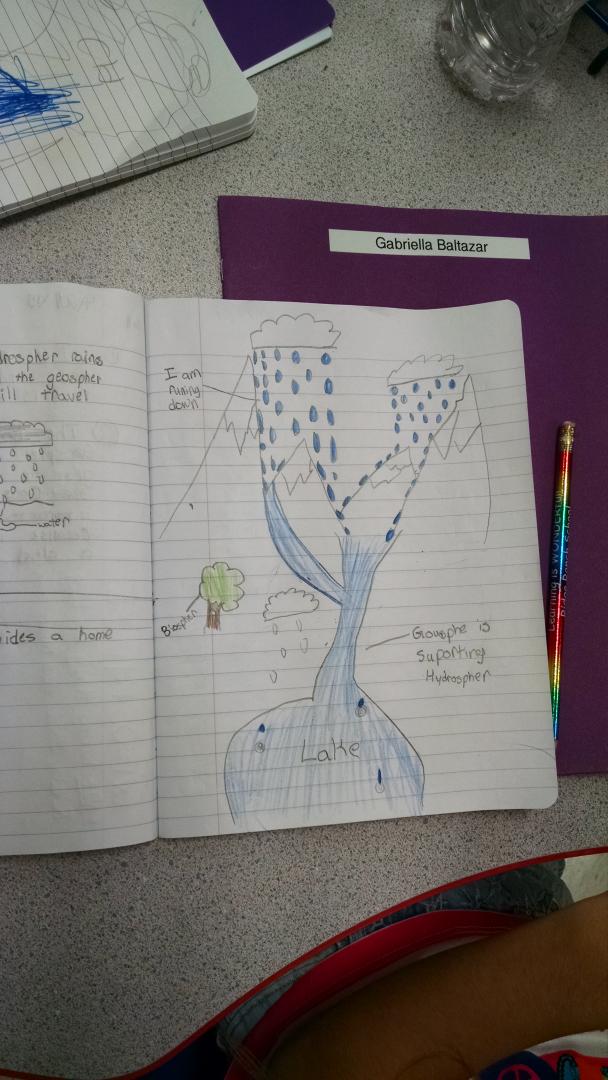 Gabriella Baltazar
drospher rains
the geospher
ill travel
water
ides a home
I am
runing
down
Biospher
Geosphe is
Suporting
Hydrospher
Lake
Learning is WONDERFUL